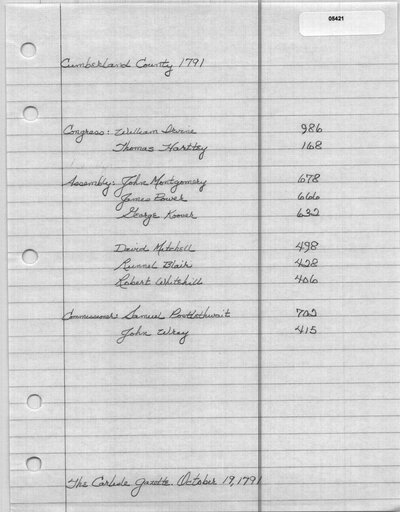 05421
Cumberland County 1791
Congress: William Irvine 986
Thomas Hartley 168
Assembly: John Montgomery 678
James Power 666
George Koover 632
David Mitchell 498
Runnel Blair 428
Robert Whitehill 406
Commissioner: Samuel Postlethwait 702
John Wray 415
The Carlisle Gazette. October 19, 1791